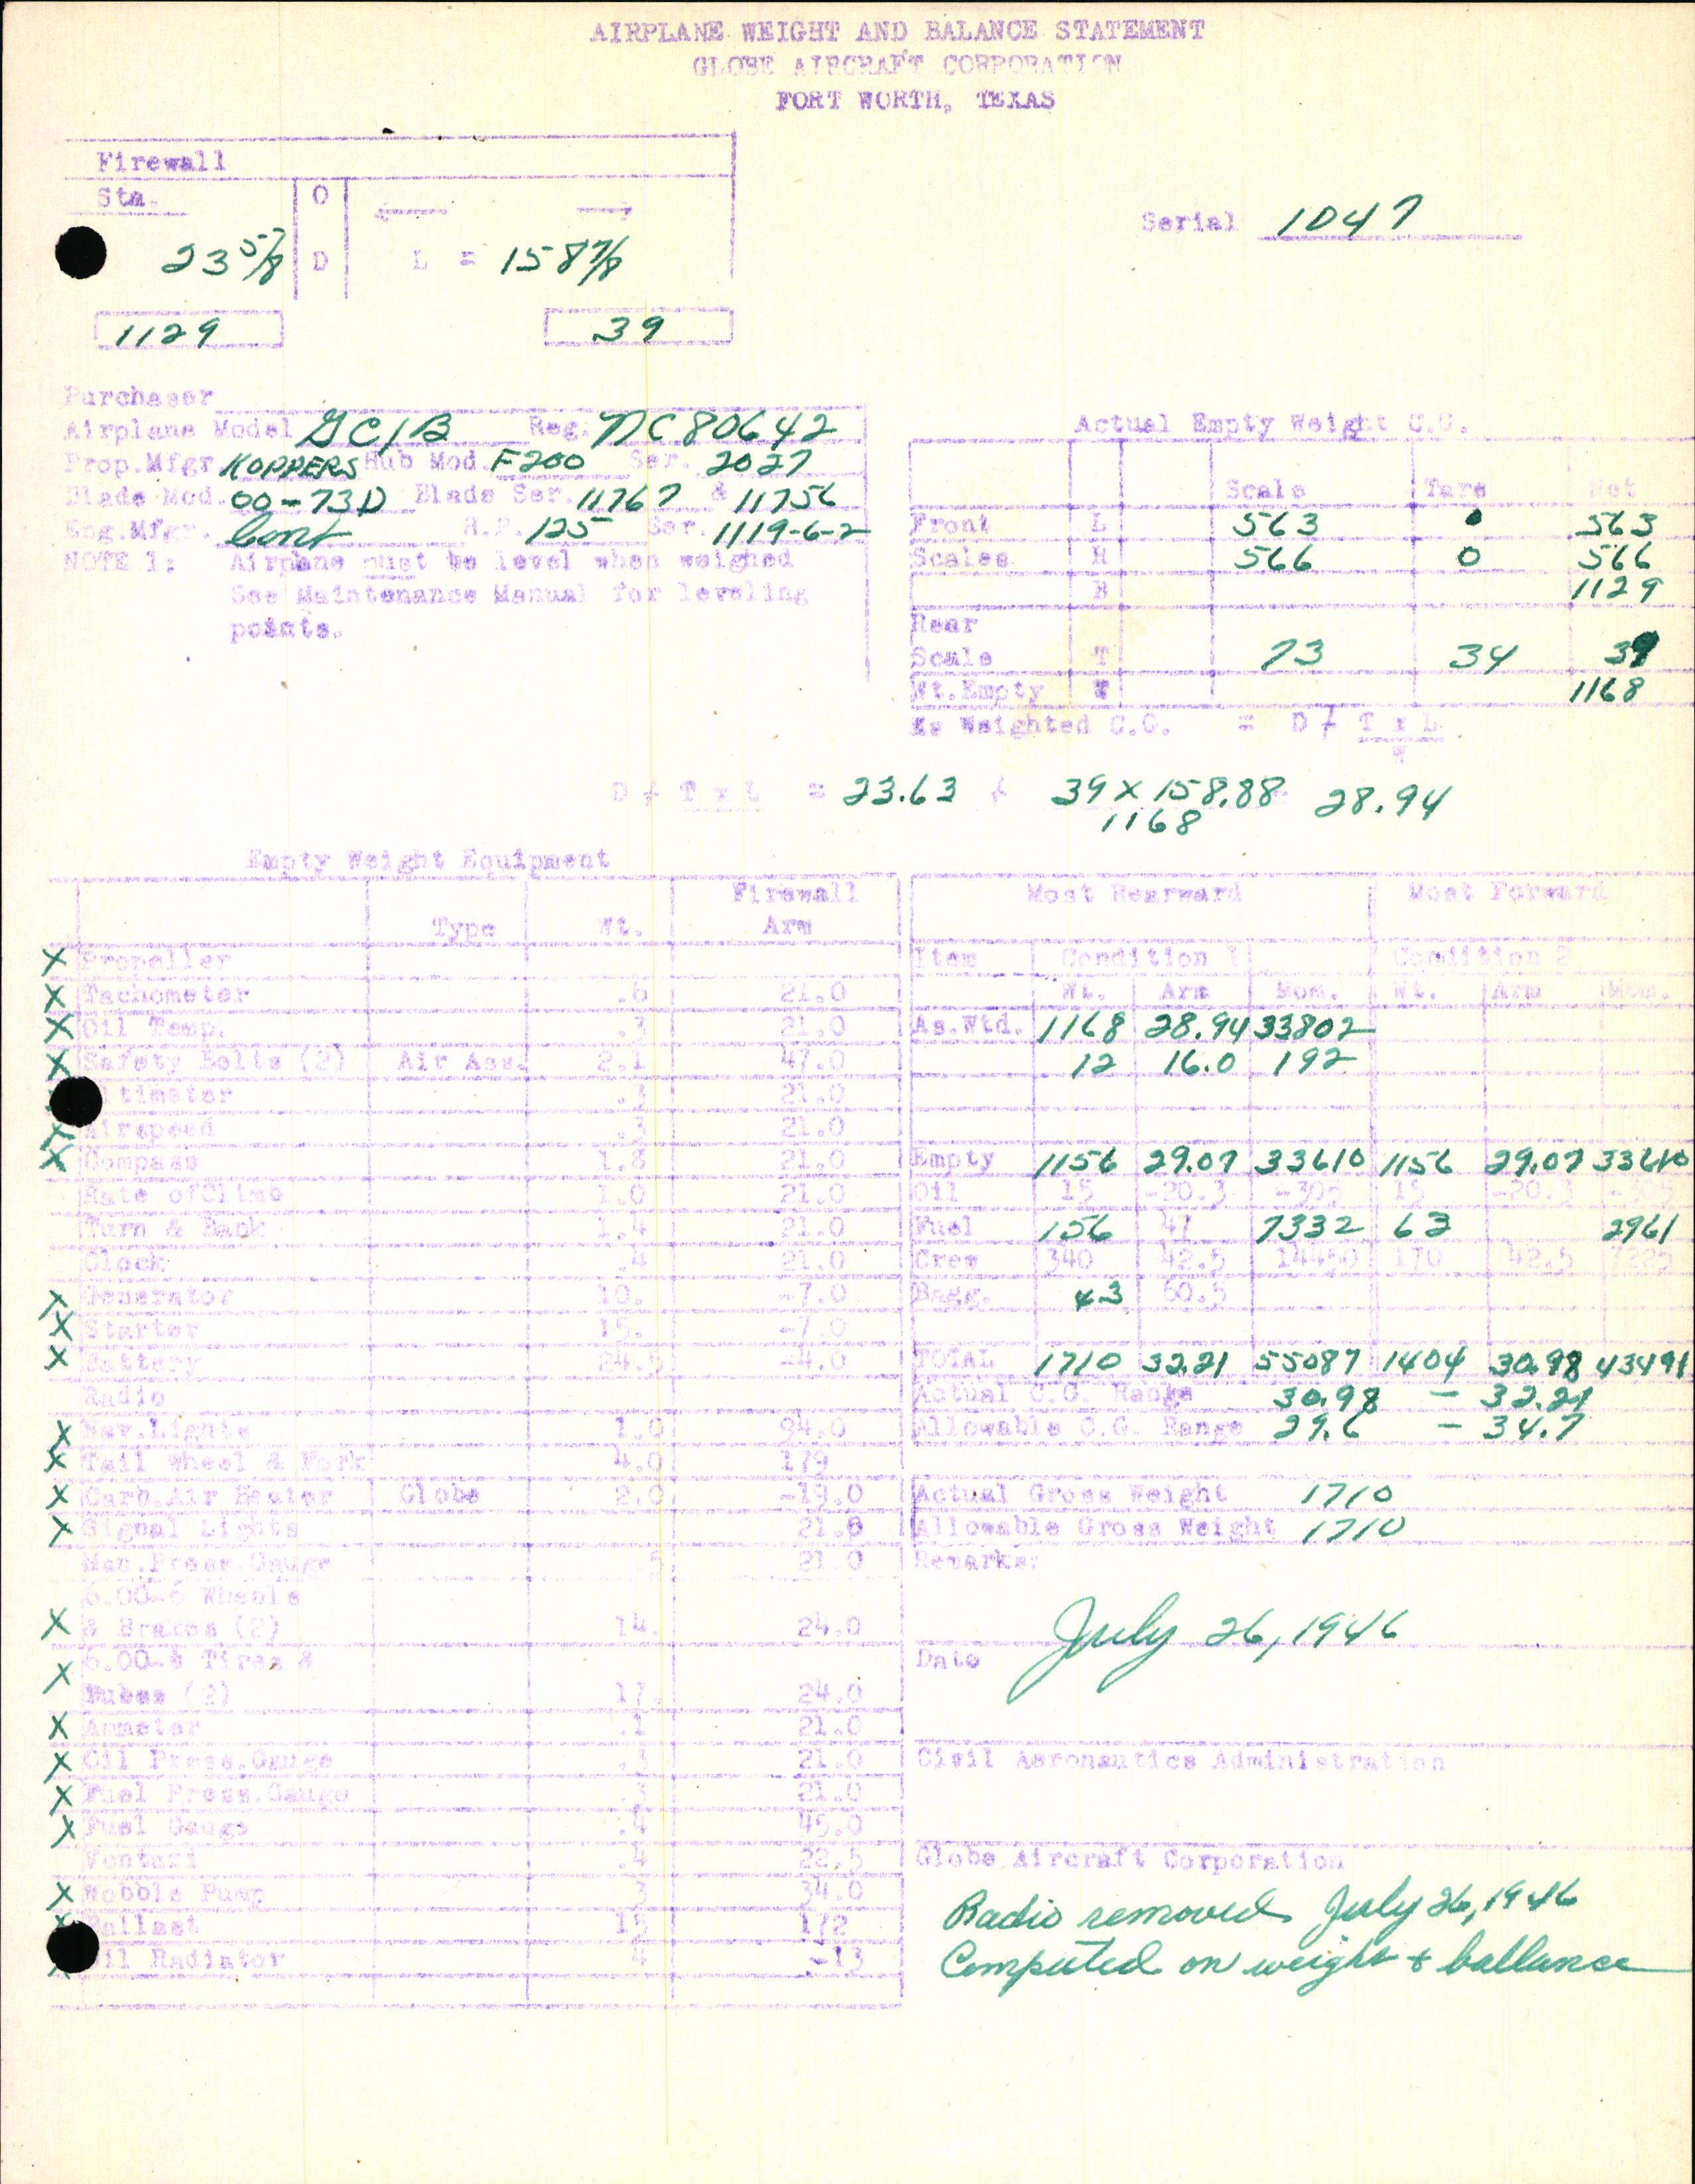 AIRPLANE WEIGHT AND BALANCE STATEMENT
GLOBE AIRCRAFT CORPORATION
FORT WORTH, TEXAS
Firewall
Sta. O
23 5/8 D L = 158 7/8
Serial 1047
1129 39
Purchaser
Airplane Model GC1B Reg. NC80642
Prop.Mfgr. KOPPERS Hub Mod. F200 Ser. 2027
Blade Mod. 00-73D Blade Ser. 11767 & 11756
Eng.Mfgr. Cont H.P. 125 Ser. 1119-6-2
NOTE 1: Airplane must be level when weighed
See Maintenance Manual for leveling
points.
Actual Empty Weight C.G.
Scale Tare Net
Front L 563 563
Scales R 566 0 566
B 1129
Rear
Scale T 73 34 39
Wt.Empty W 1168
As Weighted C.G. = D + T x L
W
D + T x L = 23.63 + 39 x 158.88 28.94
1168
Empty Weight Equipment
Type Wt. Firewall Arm
X Propeller
X Tachometer .6 21.0
X Oil Temp. .3 21.0
X Safety Belts (2) Air Ass. 2.1 47.0
ltimeter .3 21.0
X Airspeed .3 21.0
X Compass 1.8 21.0
Rate of Climb 1.0 21.0
Turn & Bank 1.4 21.0
Clock .4 21.0
X Generator 10. -7.0
X Starter 15. -7.0
X Battery 24.5 -4.0
Radio
X Nav.Lights 1.0 94.0
X Tail Wheel & Fork 4.0 179
X Carb.Air Heater Globe 2.0 -19.0
X Signal Lights 21.0
Man.Press.Gauge .5 21.0
6.00-6 Wheels
X & Brakes (2) 14. 24.0
X 6.00-6 Tires &
Tubes (2) 17. 24.0
X Ammeter .1 21.0
X Oil Press.Gauge .3 21.0
X Fuel Press.Gauge .3 21.0
X Fuel Gauge .4 45.0
Venturi .4 22.5
X Wobble Pump 3 34.0
X Ballast 15 172
il Radiator 4 -13
Most Rearward Most Forward
Item Condition 1 Condition 2
Wt. Arm Mom. Wt. Arm Mom.
As.Wtd. 1168 28.94 33802
12 16.0 192
Empty 1156 29.07 33610 1156 29.07 33610
Oil 15 -20.3 -305 15 -20.3 -305
Fuel 156 47 7332 63 2961
Crew 340 42.5 14450 170 42.5 7225
Bagg. 43 60.5
TOTAL 1710 32.21 55087 1404 30.98 43491
Actual C.G. Range 30.98 - 32.21
Allowable C.G. Range 29.6 - 34.7
Actual Gross Weight 1710
Allowable Gross Weight 1710
Remarks:
July 26, 1946
Date
Civil Aeronautics Administration
Globe Aircraft Corporation
Radio removed July 26, 1946
Computed on weight & ballance